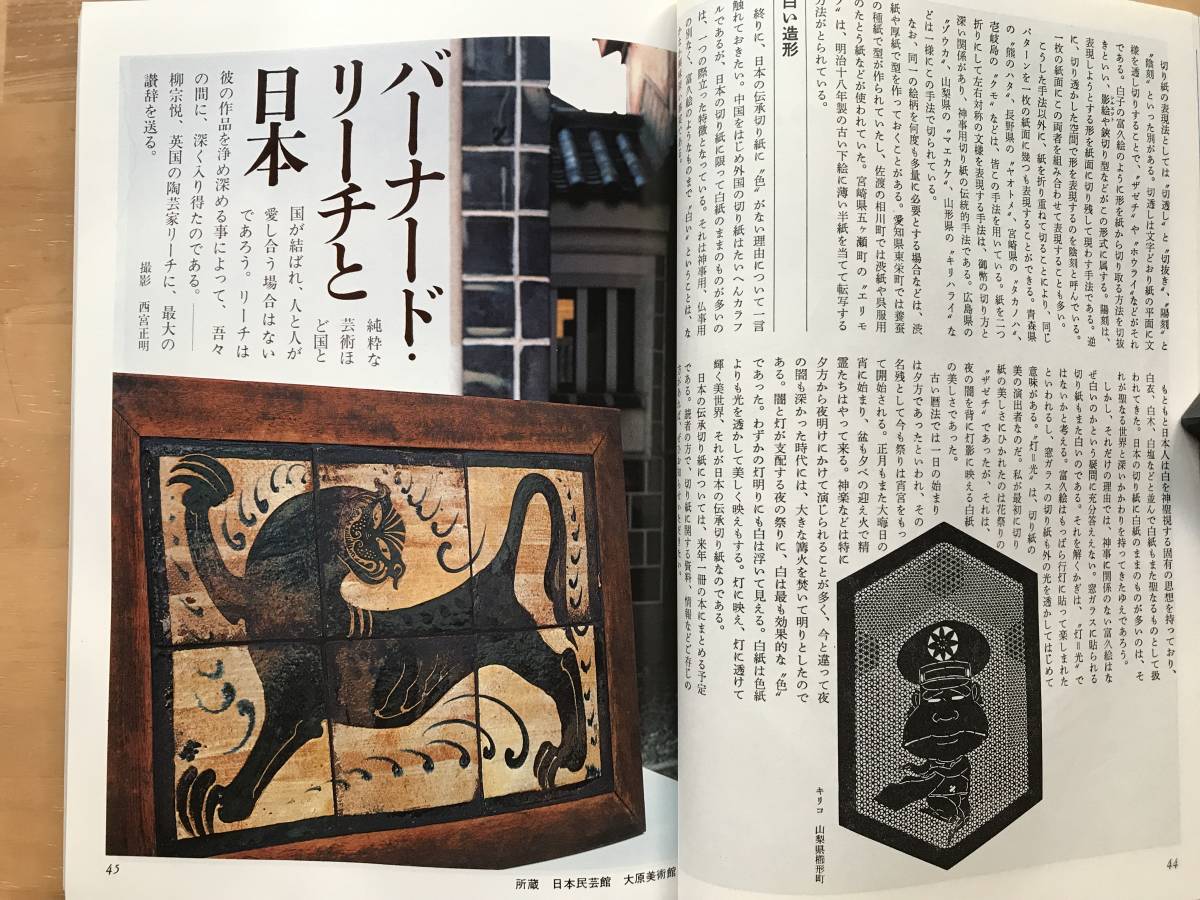 切り紙の表現法としては〝切透し〟と〝切抜き〟、〝陽刻〟と
〝陰刻〟といった別がある。切透しは文字どおり紙の平面に文
様を透し切りすることで、〝ザゼチ〟や〝ホウライ〟などがそれ
である。白子の富久絵のように形を紙から切り取る方法を切抜
きといい、影絵や鋏切り型などがこの形式に属する。陽刻は、
表現しようとする形を紙面に切り残して現わす手法である。逆
に、切り透かした空間で形を表現するのを陰刻と呼んでいる。
一枚の紙面にこの両者を組み合わせて表現することも多い。
こうした手法以外に、紙を折り重ねて切ることにより、同じ
パターンを一枚の紙面に幾つも表現することができる。青森県
の〝熊のハタ〟、長野県の〝ヤオトメ〟、宮崎県の〝タカノハ〟、
壱岐島の〝クモ〟などは、皆この手法を用いている。紙を二つ
折りにして左右対称の文様を表現する手法は、御幣の切り方と
深い関係があり、神事用切り紙の伝統的手法である。広島県の
〝ゾウカ〟、山梨県の〝マエカケ〟、山形県の〝キリハライ〟な
どは一様にこの手法で切られている。
なお、同一の絵柄を何度も多量に必要とする場合などは、渋
紙や厚紙で型を作っておくことがある。愛知県東栄町では養蚕
の種紙で型が作られていたし、佐渡の相川町では渋紙や呉服用
のたとう紙などが使われていた。宮崎県五ヶ瀬町の〝エリモ
ノ〟は、明治十八年製の古い下絵に薄い半紙を当てて転写する
方法がとられている。
白い造形
終りに、日本の伝承切り紙に〝色〟がない理由について一言
触れておきたい。中国をはじめ外国の切り紙はたいへんカラフ
ルであるが、日本の切り紙に限って白紙のままのものが多いの
は、一つの際立った特徴となっている。それは神事用、仏事用
の別なく、富久絵のようなものまで〝白い〟ということは、な
もともと日本人は白を神聖視する固有の思想を持っており、
白衣、白木、白塩などと並んで白紙もまた聖なるものとして扱
われてきた。日本の切り紙に白紙のままのものが多いのは、そ
れが聖なる世界と深いかかわりを持ってきたゆえであろう。
しかし、それだけの理由では、神事に関係のない富久絵はな
ぜ白いのかという疑問に充分答ええない。窓ガラスに貼られる
切り紙もまた白いのである。それを解くかぎは、〝灯＝光〟で
はないかと考える。富久絵はもっぱら行灯に貼って楽しまれた
といわれるし、窓ガラスの切り紙も外の光を透かしてはじめて
意味がある。〝灯＝光〟は、切り紙の
美の演出者なのだ。私が最初に切り
紙の美しさにひかれたのは花祭りの
〝ザゼチ〟であったが、それは、
夜の闇を背に灯影に映える白紙
の美しさであった。
古い暦法では一日の始まり
は夕方であったといわれ、その
名残として今も祭りは宵宮をもっ
て開始される。正月もまた大晦日の
宵に始まり、盆も夕べの迎え火で精
霊たちはやって来る。神楽などは特に
夕方から夜明けにかけて演じられることが多く、今と違って夜
の闇も深かった時代には、大きな篝火を焚いて明りとしたので
ある。闇と灯が支配する夜の祭りに、白は最も効果的な〝色〟
であった。わずかの灯明りにも白は浮いて見える。白紙は色紙
よりも光を透かして美しく映えもする。灯に映え、灯に透けて
輝く美世界、それが日本の伝承切り紙なのである。
日本の伝承切り紙については、来年一冊の本にまとめる予定
である。読者の方で、切り紙に関する資料、情報などご存じの
キリコ 山梨県櫛形町
44
バーナード・
リーチと
日本
純粋な
芸術ほ
ど国と
国が結ばれ、人と人が
愛し合う場合はない
であろう。リーチは
彼の作品を浄め深める事によって、吾々
の間に、深く入り得たのである。――
柳宗悦、英国の陶芸家リーチに、最大の
讃辞を送る。
撮影 西宮正明
45
所蔵 日本民芸館 大原美術館